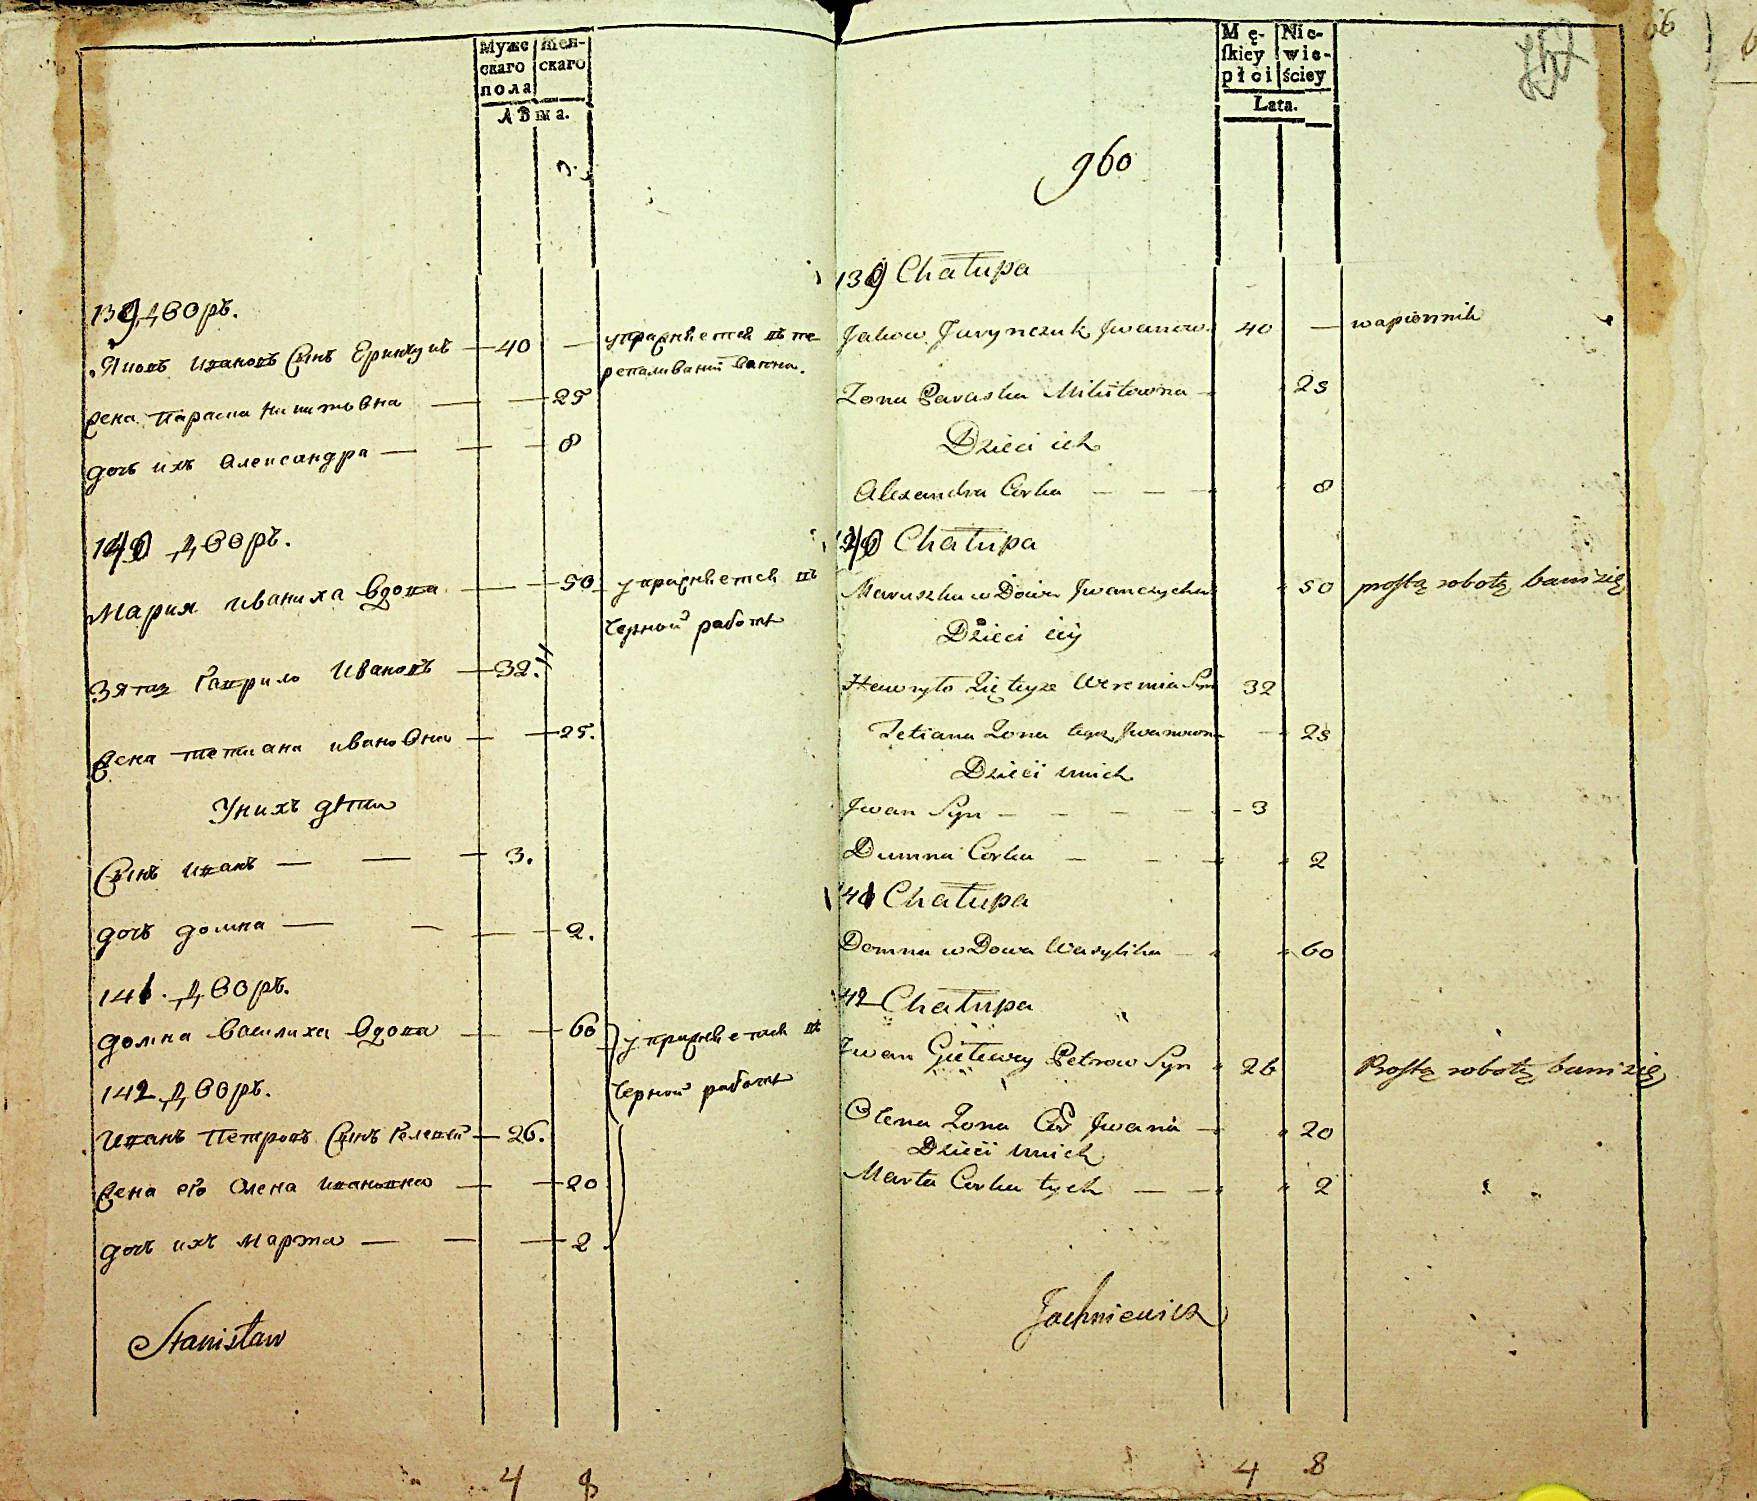 Муже
скаго
пола
Жен-
скаго
Лѣта.
3.
139 дворъ.
Яковъ Ивановъ Сынъ Еринчукъ — 40 — упражняется въ пе
репаливаніи вапна.
Жена Параска Никитовна — — 25
дочь ихъ Александра — — — 8
140 дворъ.
Мария Иваниха вдова — — 50 упражняется въ
черной работѣ
Зять Гаврило Ивановъ — 32.
Жена Тетиана Ивановна — — 25.
У нихъ дѣти
Сынъ Иванъ — — — 3.
дочь домна — — — — 2.
141. дворъ.
домна Василиха вдова — — 60 упражняется въ
142 дворъ.
черной работѣ
Иванъ Петровъ Сынъ — 26.
Жена его Олена Ивановна — — 20
дочь ихъ Марта — — — 2
Stanisław
4 8
Mę-
ſkiey
płci
Nie-
wie-
ściey
Lata.
66
960
139 Chałupa
Jakow Jurynczuk Jwanow. 40 — wapiennik
Zona Paraska Mikitowna — 25
Dzieci ich
Alexandra Corka — — — 8
140 Chałupa
Maruszka w Dowa Jwanczycha 50 proſtą robotą bawi się
Dzieci iey
Hawryło Zięć Syn 32
Tetiana Zona tego Jwanowna — 25
Dzieci unich
Jwan Syn — — — — - 3
Dumna Corka — — — 2
141 Chałupa
Domna w Dowa Wasylicha — 60
142 Chałupa
Jwan Petrow Syn 26 Proſtą robotą bawi się
Olena Zona Jwana — 20
Dzieci unich
Marta Corka tych — — 2
Jachniewicz
4 8